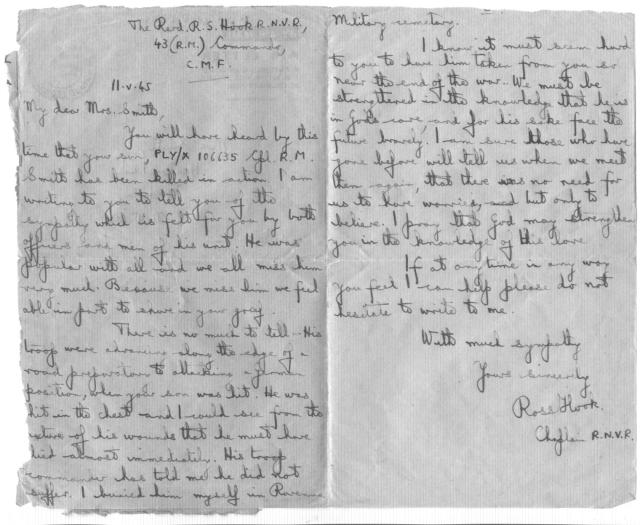 The Revd. R.S. Hook R.N.V.R.,
43 (R.M.) Commando,
C.M.F.
11.v.45
My dear Mrs. Smith,
You will have heard by this
time that your son, PLY/X 106635 Cpl. R.M.
Smith has been killed in action. I am
writing to you to tell you of the
sympathy which is felt for you by both
officers and men of his unit. He was
popular with all and we all miss him
very much. Because we miss him we feel
able in part to share in your grief.
There is no much to tell - His
troop were advancing along the edge of a
road preparatory to attacking a German
position, when your son was hit. He was
hit in the chest and I could see from the
nature of his wounds that he must have
died almost immediately. His troop
commander has told me he did not
suffer. I buried him myself in Ravenna
Military cemetary.
I know it must seem hard
to you to have him taken from you so
near the end of the war. We must be
strengthened in the knowledge that he is
in God's care, and for his sake face the
future bravely. I am sure those who have
gone before will tell us when we meet
them again, that there was no need for
us to have worried, but only to
believe. I pray that God may strengthen
you in the knowledge of His love.
If at any time in any way
you feel I can help please do not
hesitate to write to me.
With much sympathy
Yours sincerely
Ross Hook.
Chaplain R.N.V.R.